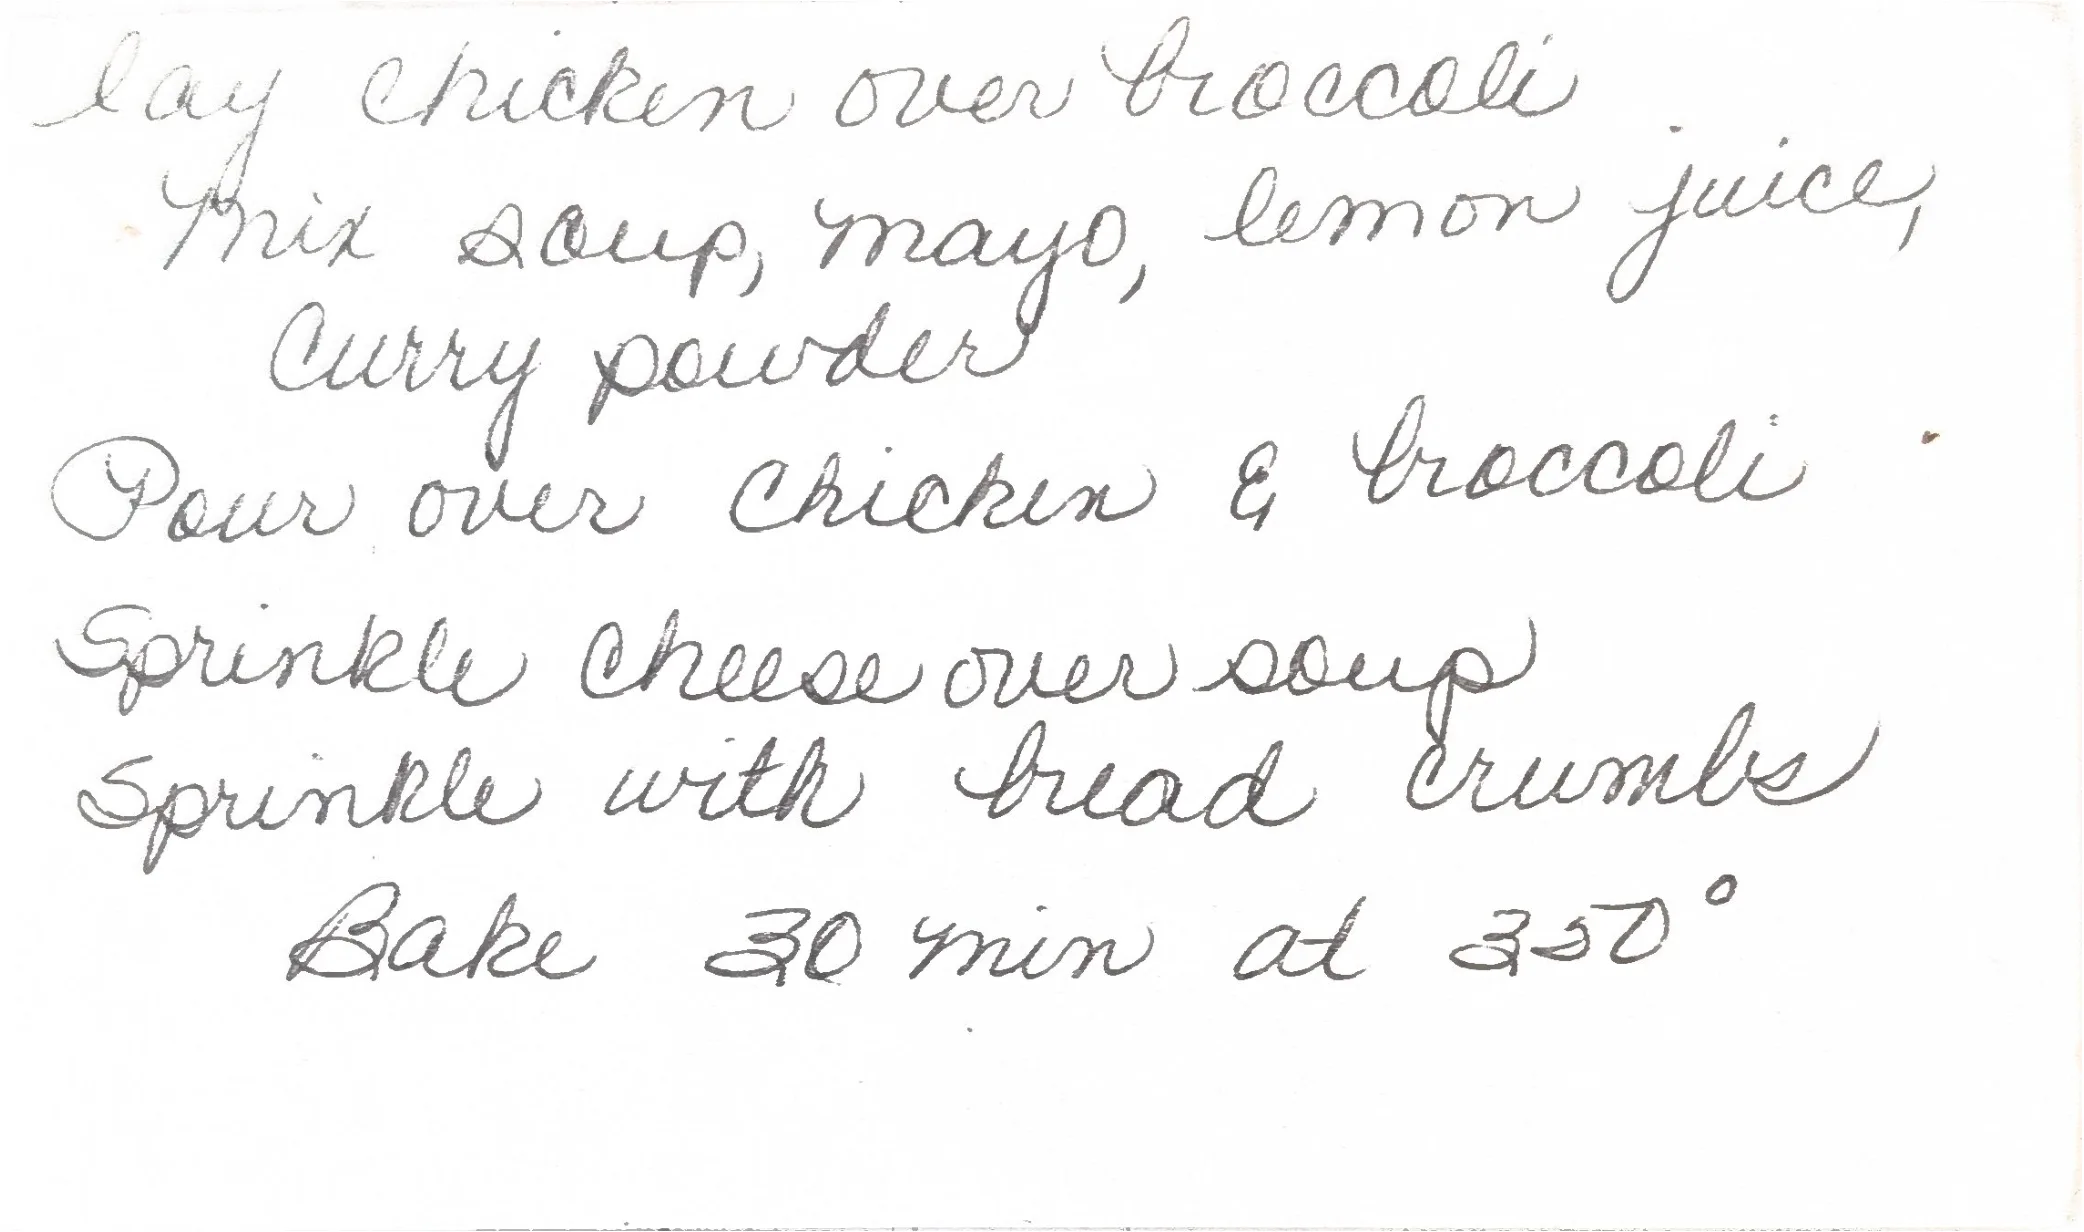 lay chicken over broccoli
Mix soup, mayo, lemon juice,
Curry powder
Pour over chicken & broccoli
Sprinkle cheese over soup
Sprinkle with bread crumbs
Bake 30 min at 350°